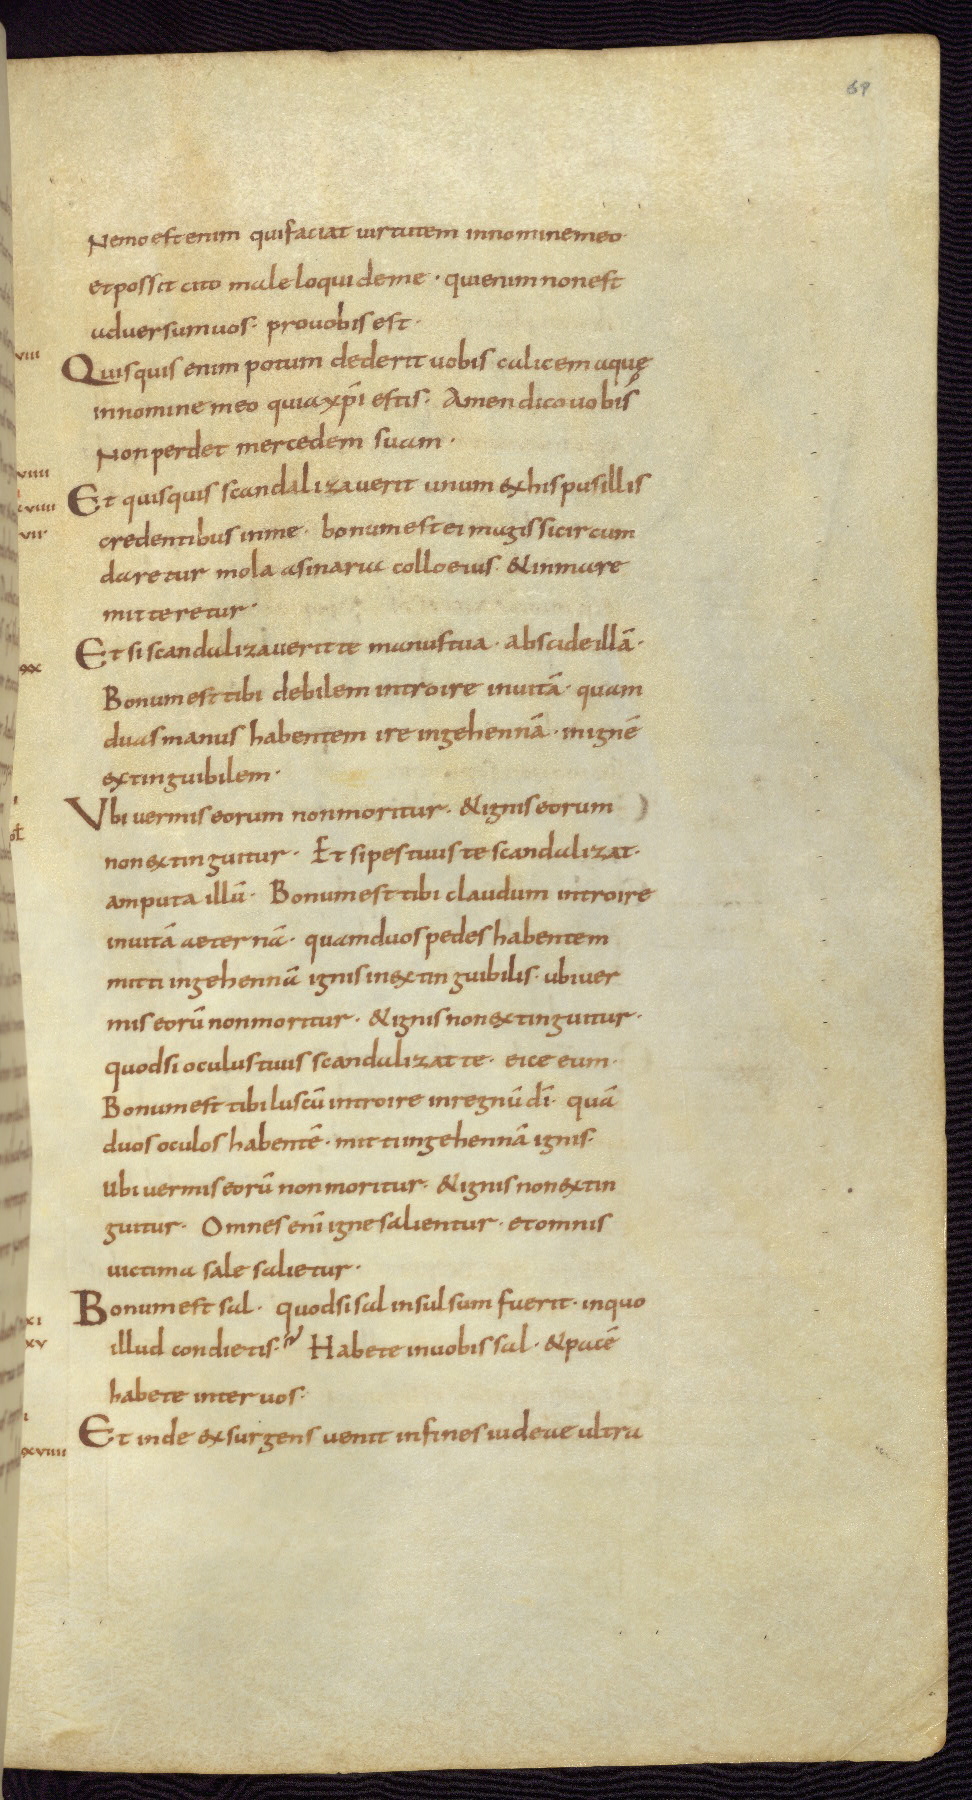 69
Nemo est enim qui faciat uirtutem in nomine meo
et possit cito male loqui de me · qui enim non est
aduersum uos · pro uobis est ·
VIII
Quisquis enim potum dederit uobis calicem aquę
in nomine meo quia xp̄i estis · Amen dico uobis
Non perdet mercedem suam ·
VIIII
Et quisquis scandalizauerit unum ex his pusillis
credentibus in me · bonum est ei magis si circum
daretur mola asinaria collo eius · & in mare
mitteretur ·
Et si scandalizauerit te manus tua · abscide illā ·
Bonum est tibi debilem introire in uitā · quam
duas manus habentem ire in gehennā · in ignē
extinguibilem ·
Vbi uermis eorum non moritur · & ignis eorum
non extinguitur · Et si pes tuus te scandalizat ·
amputa illū · Bonum est tibi claudum introire
in uitā aeternā · quam duos pedes habentem
mitti in gehennā ignis inextinguibilis · ubi uer
mis eorū non moritur · & ignis non extinguitur ·
quod si oculus tuus scandalizat te · eice eum ·
Bonum est tibi luscū introire in regnū dī · quā
duos oculos habentē · mitti in gehennā ignis ·
Ubi uermis eorū non moritur · & ignis non extin
guitur · Omnes enī igne salientur · et omnis
uictima sale salietur ·
Bonum est sal · quod si sal insulsum fuerit · in quo
illud condietis · Habete in uobis sal · & pacē
habete inter uos ·
Et inde exsurgens uenit in fines iudeae ultra